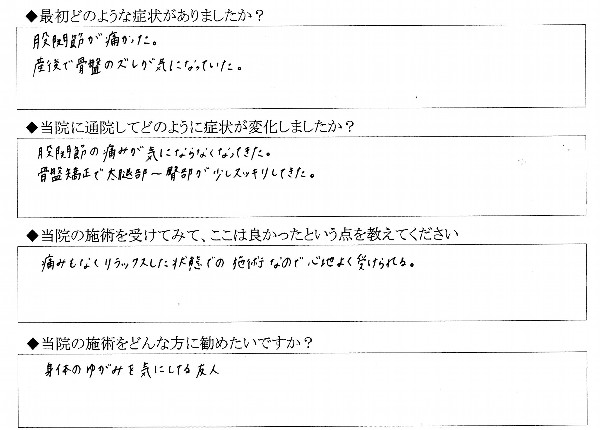 ◆最初どのような症状がありましたか？
股関節が痛かった。
産後で骨盤のズレが気になっていた。
◆当院に通院してどのように症状が変化しましたか？
股関節の痛みが気にならなくなってきた。
骨盤矯正で太腿部〜臀部が少しスッキリしてきた。
◆当院の施術を受けてみて、ここは良かったという点を教えてください
痛みもなくリラックスした状態での施術なので心地よく受けられる。
◆当院の施術をどんな方に勧めたいですか？
身体のゆがみを気にしてる友人